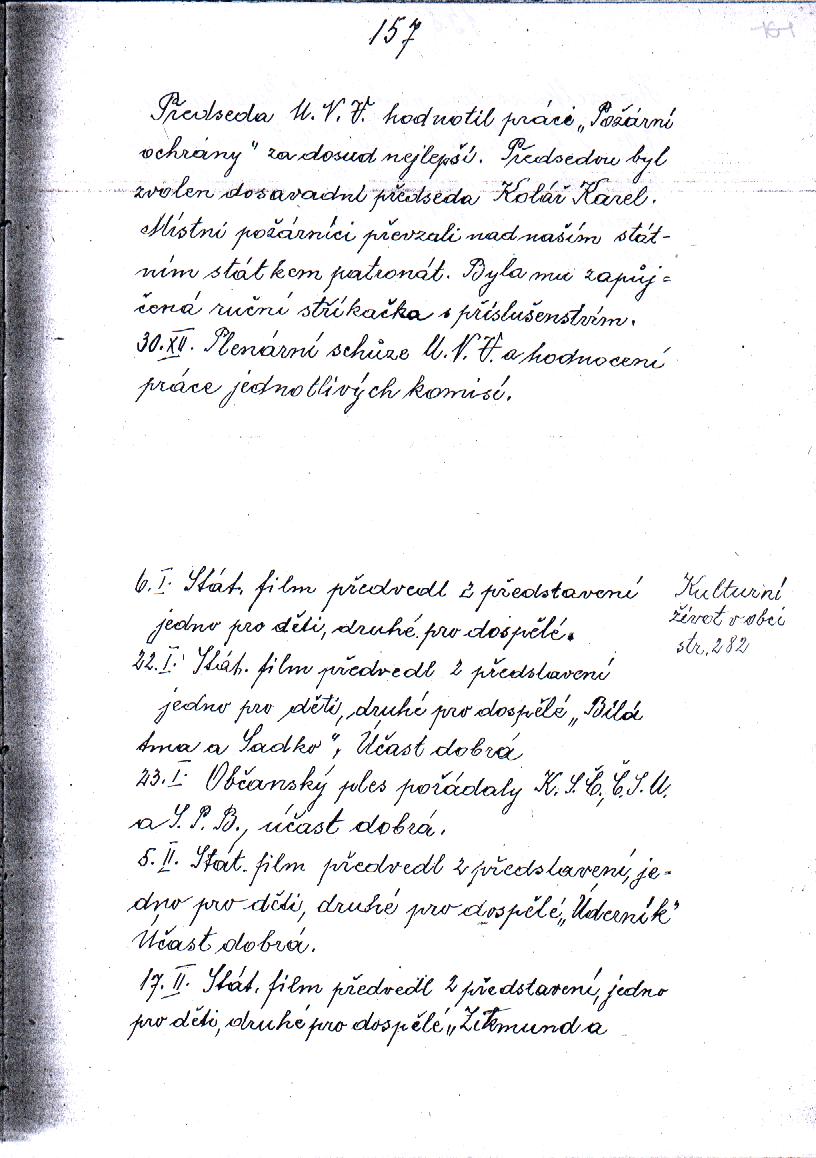 157
Předseda M.N.V. hodnotil práci „Požární
ochrány" za dosud nejlepší. Předsedou byl
zvolen dosavadní předseda Kolář Karel.
Místní požárníci převzali nad naším stát-
ním státkem patronát. Byla mu zapůj-
čená ruční stříkačka s příslušenstvím.
30.XII. Plenární schůze M.N.V. a hodnocení
práce jednotlivých komisí.
6.I. Stát. film předvedl 2 představení
jedno pro děti, druhé pro dospělé.
22.I. Stát. film předvedl 2 představení
jedno pro děti, druhé pro dospělé „Bílá
tma a Sadko", Účast dobrá
23.I. Občanský ples pořádaly K.S.Č., Č.S.M.
a S.P.B., účast dobrá.
5.II. Stát. film předvedl 2 představení, je-
dno pro děti, druhé pro dospělé „Úderník"
Účast dobrá.
17.II. Stát. film předvedl 2 představení, jedno
pro děti, druhé pro dospělé „Zikmund a
Kulturní
život v obci
str. 282